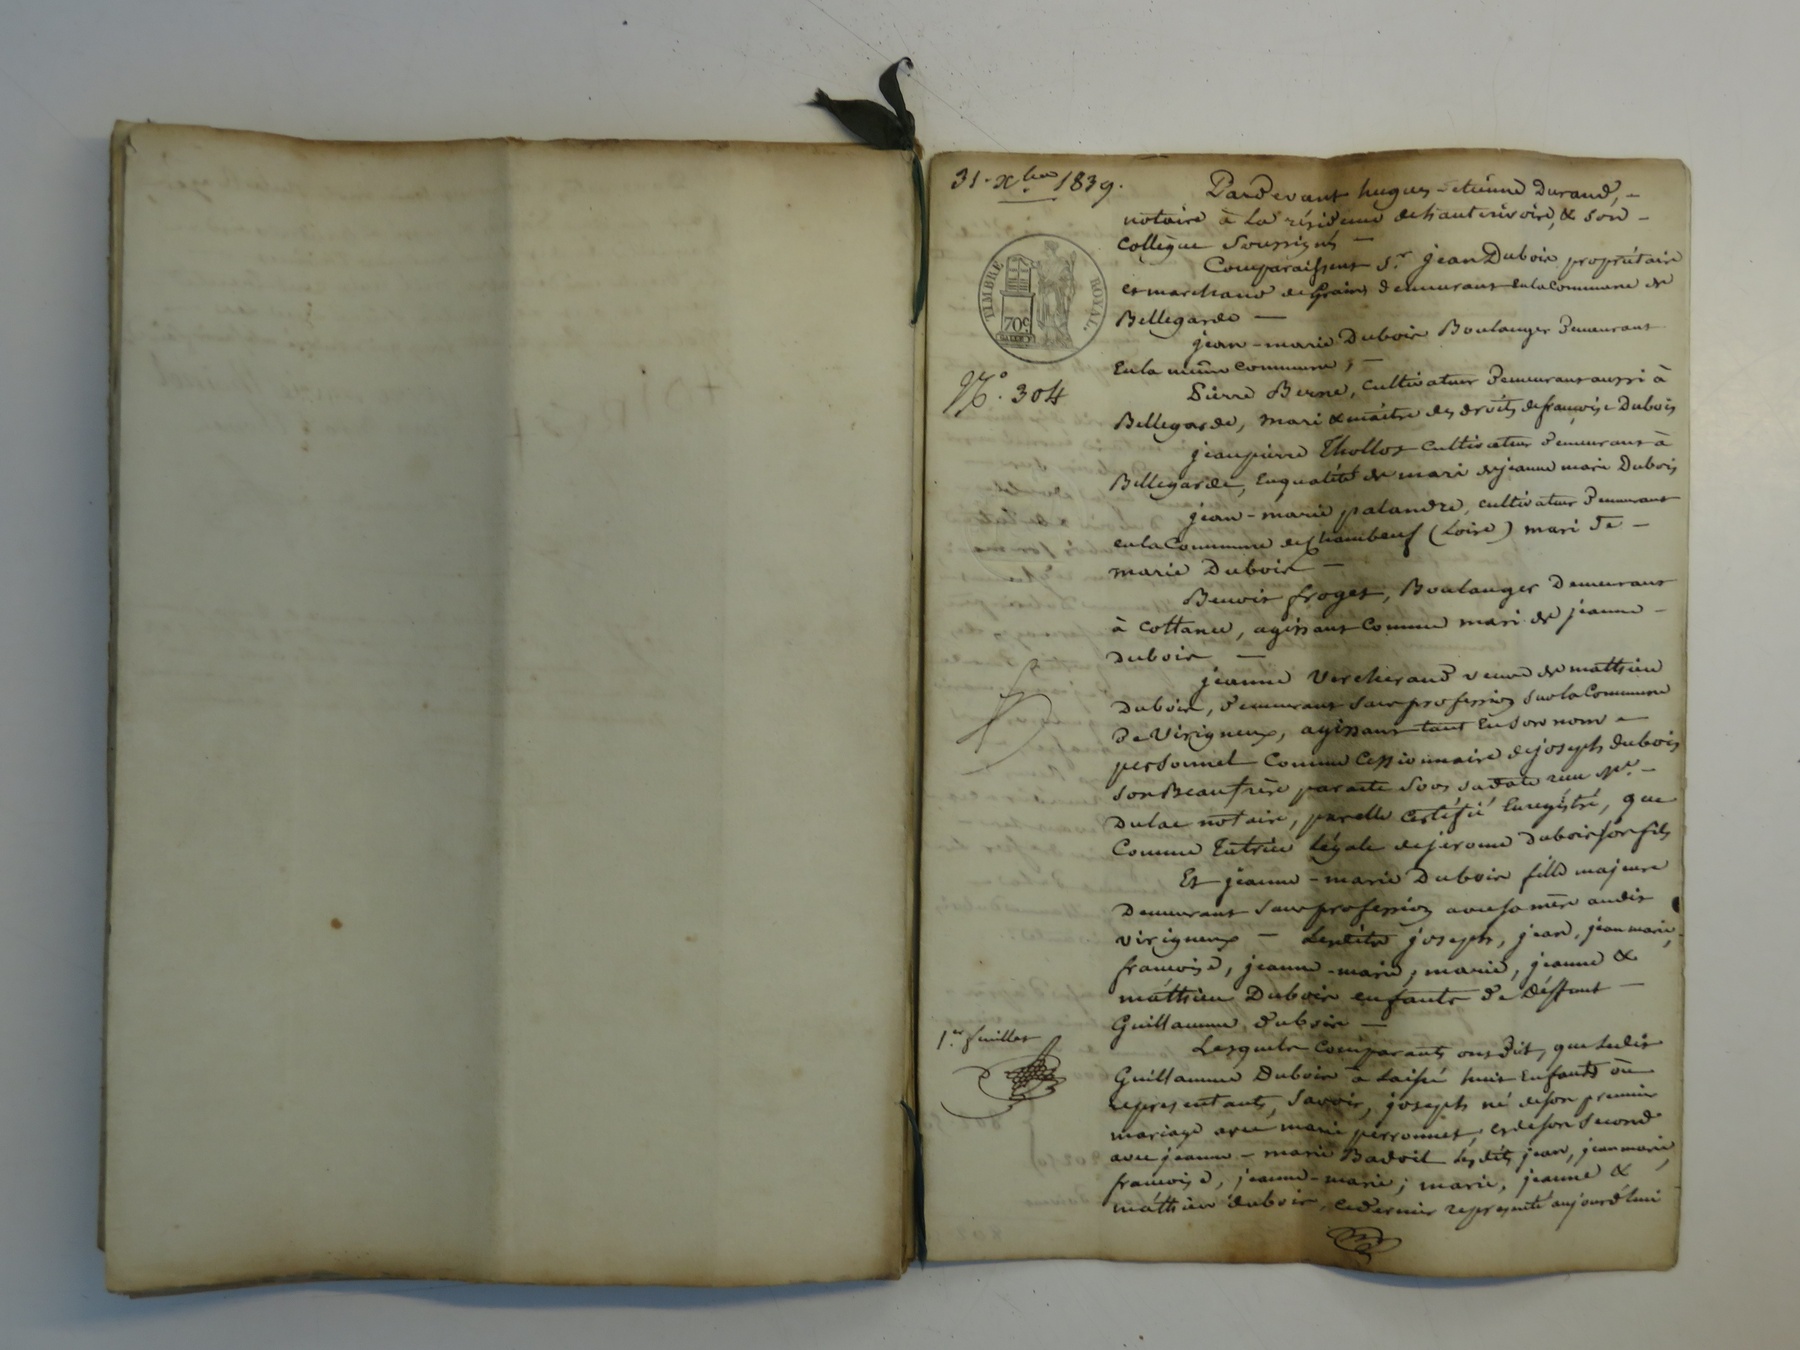 31. Xbre 1839.
Pardevant hugues-etienne Durand, -
notaire à la résidence de hauterivoire, & son -
Collègue Soussignés -
TIMBRE ROYAL.
70c
Comparaissent Sr. jean Dubois propriétaire
et marchand de Grains demeurant en la Commune de
Bellegarde -
jean-marie Dubois Boulanger demeurant
En la même Commune, -
No. 304
Pierre Berne, Cultivateur demeurant aussi à
Bellegarde, mari & maître des droits de françoise Dubois
jeanpierre Thollot Cultivateur demeurant à
Bellegarde, En qualité de mari de jeanne marie Dubois
jean-marie palandre, cultivateur demeurant
en la Commune de Chambeuf (Loire) mari de -
marie Dubois -
Benoit froget, Boulanger Demeurant
à Cottance, agissant Comme mari de jeanne -
Dubois -
jeanne Vercherand veuve de mathieu
Dubois, demeurant Sans profession Sur la Commune
de Virigneux, agissant tant En Son nom -
personnel Comme Cessionnaire de joseph dubois
Son Beaufrère par acte Sous Sa date reçu Me. -
Dulac notaire, par elle Certifié Enregistré, que
Comme Tutrice légale de jérome Dubois Son fils
Et jeanne-marie Dubois fille majeure
Demeurant Sans profession avec Sa mère audit
virigneux - Lesdits joseph, jean, jean marie,
françoise, jeanne-marie, marie, jeanne &
mathieu Dubois enfants de Déffunt -
Guillaume dubois -
1.er feuillet
Lesquels Comparants ont dit, que Ledit
Guillaume Dubois a Laissé huit Enfants où
représentants, Savoir, joseph né de son premier
mariage avec marie perronnet, et de son Second
avec jeanne-marie Badoil Lesdits jean, jean marie,
françoise, jeanne-marie; marie, jeanne &
mathieu dubois, ce dernier représenté aujourd'hui